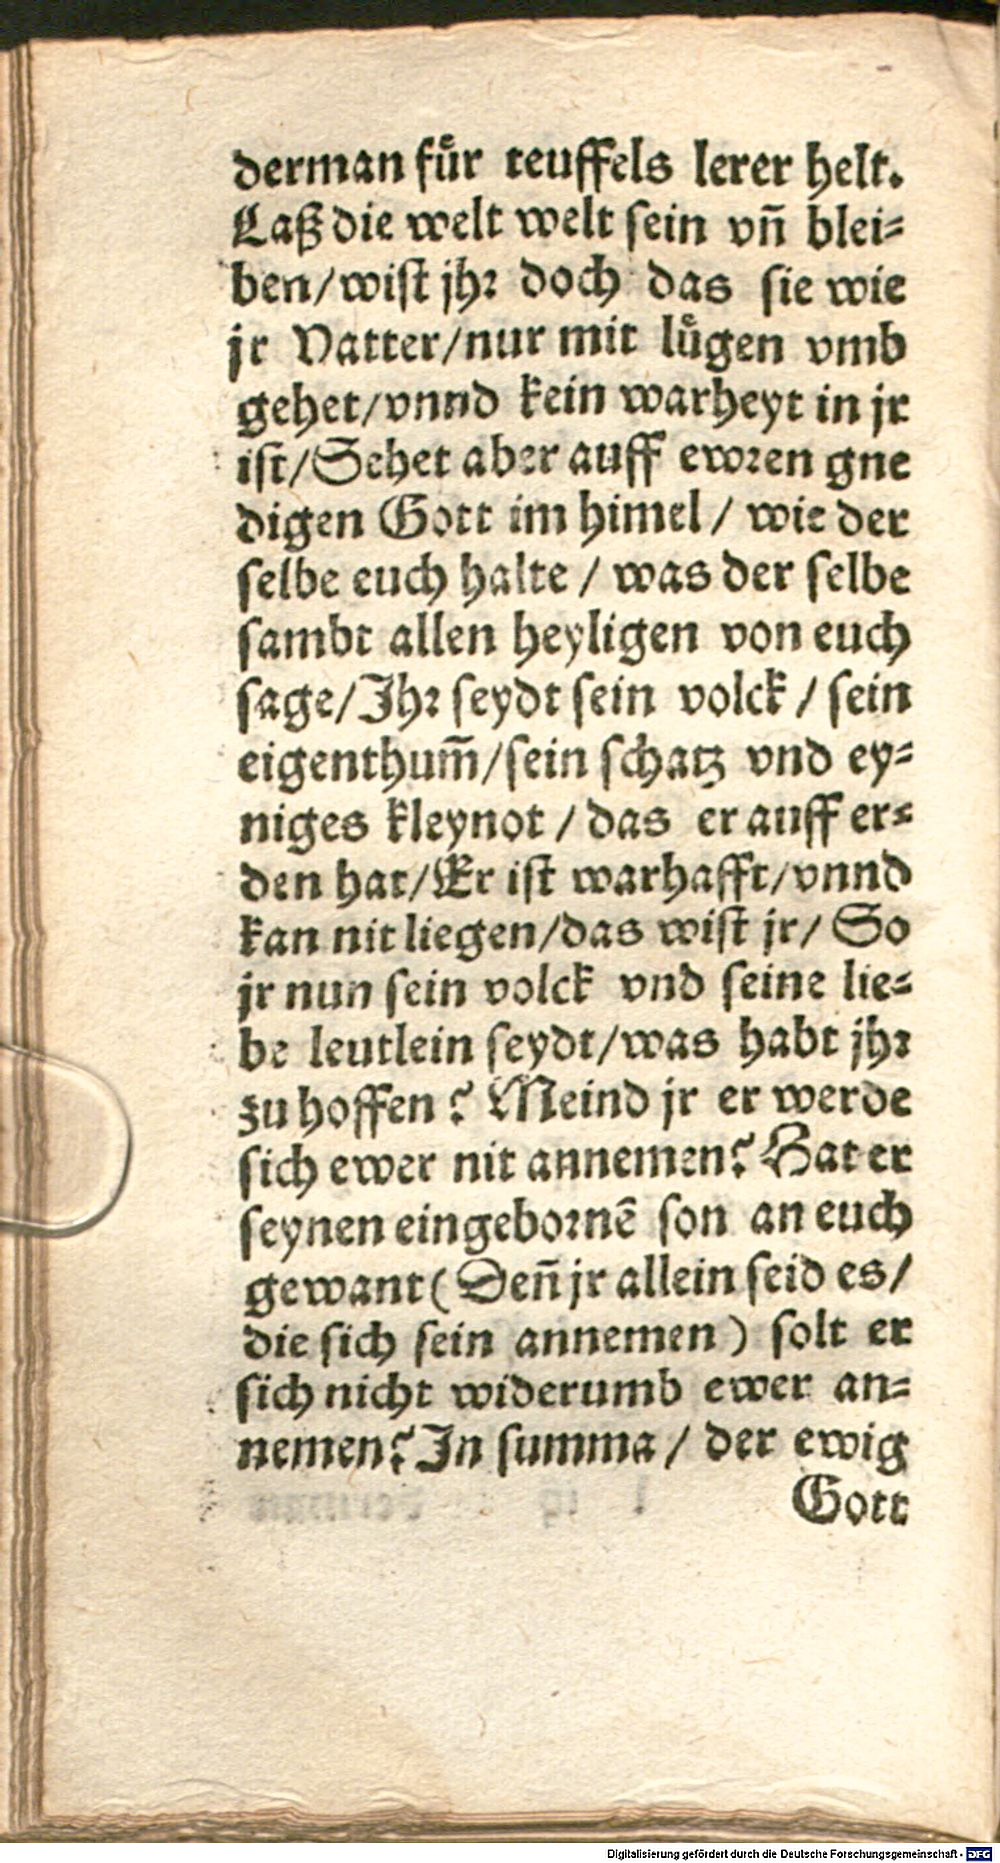 derman fuͤr teuffels lerer helt.
Laß die welt welt sein vñ blei⸗
ben/wist jhr doch das sie wie
jr Vatter/nur mit luͤgen vmb
gehet/vnnd kein warheyt in jr
ist/Sehet aber auff ewren gne
digen Gott im himel / wie der
selbe euch halte / was der selbe
sambt allen heyligen von euch
sage/Jhr seydt sein volck / sein
eigenthum̃/sein schatz vnd ey⸗
niges kleynot / das er auff er⸗
den hat/Er ist warhafft/vnnd
kan nit liegen/das wist jr/ So
jr nun sein volck vnd seine lie⸗
be leutlein seydt/was habt jhr
zu hoffen? Meind jr er werde
sich ewer nit annemen? Hat er
seynen eingebornẽ son an euch
gewant( Deñ jr allein seid es/
die sich sein annemen ) solt er
sich nicht widerumb ewer an⸗
nemen? Jn summa / der ewig
Gott
Digitalisierung gefördert durch die Deutsche Forschungsgemeinschaft - DFG